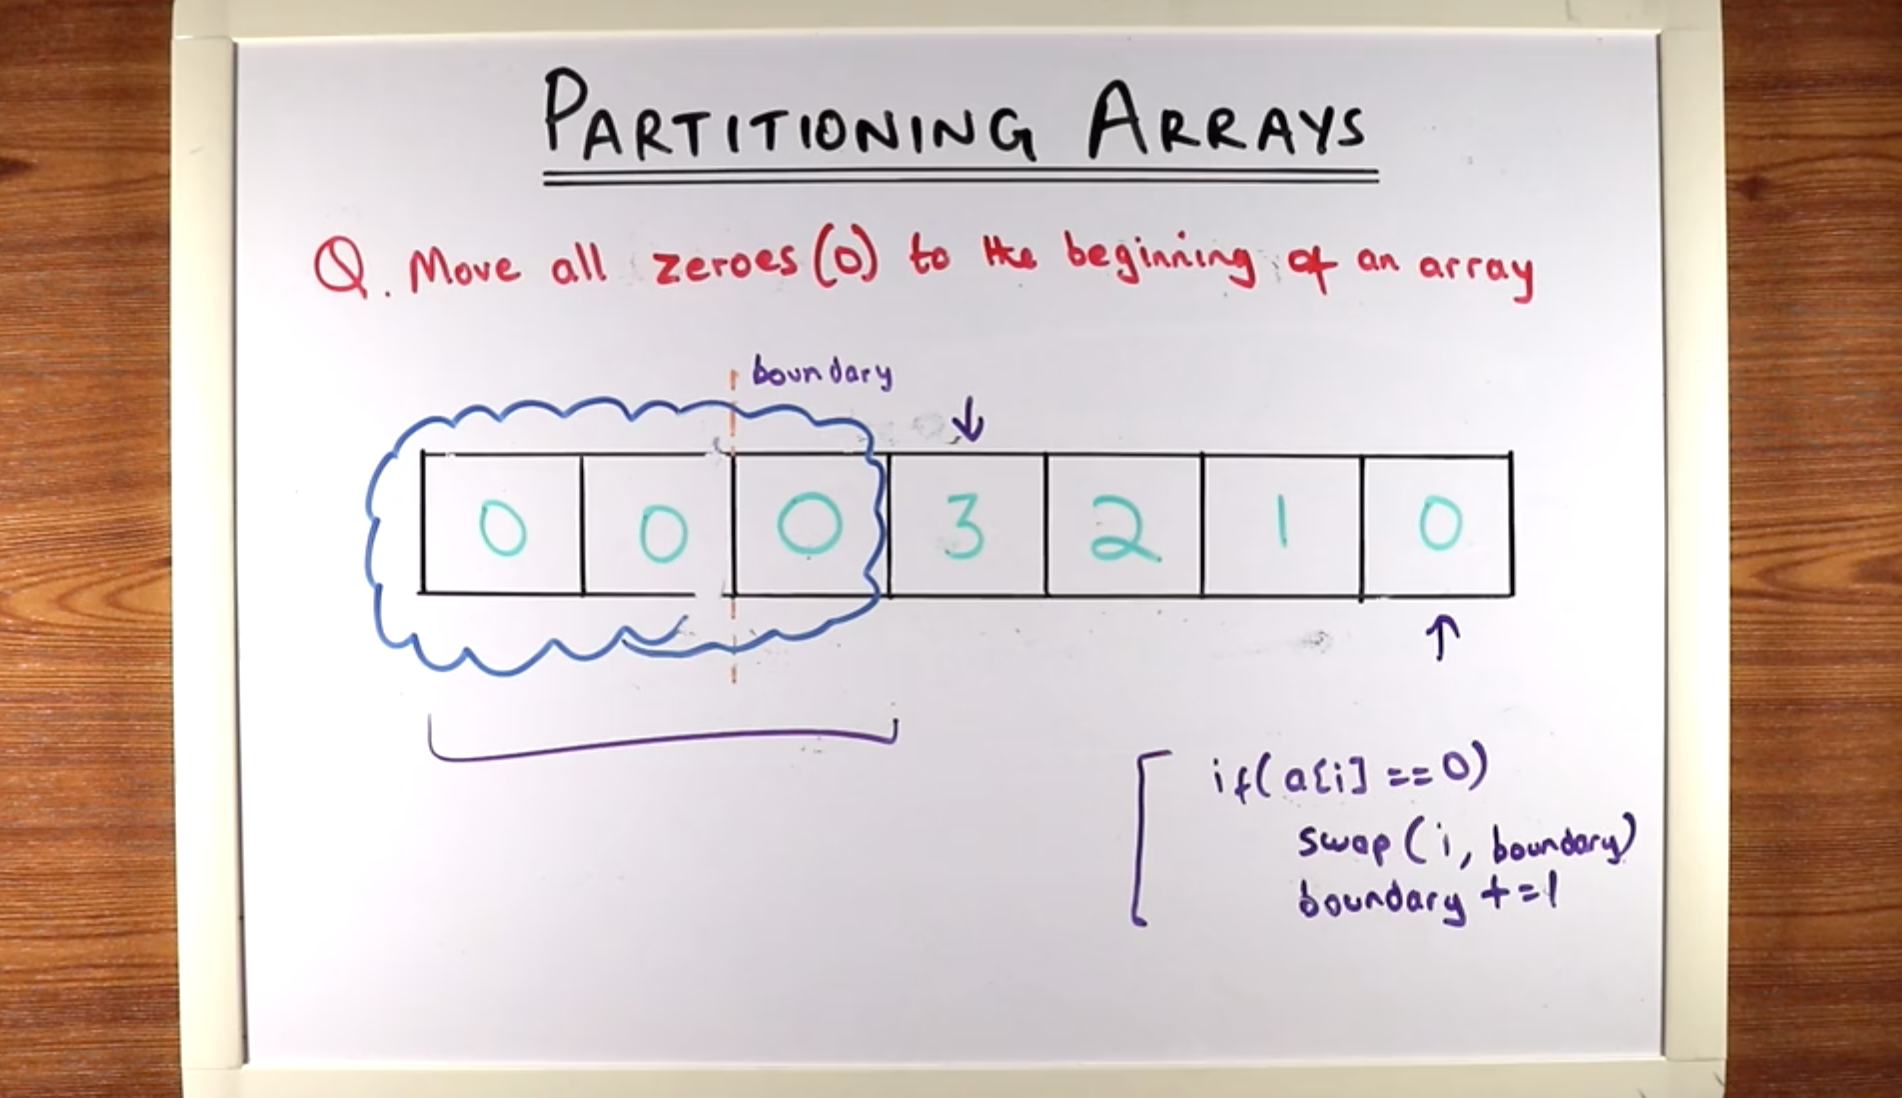 PARTITIONING ARRAYS
Q. Move all zeroes (0) to the beginning of an array
boundary
0 0 0 3 2 1 0
if(a[i] == 0)
swap(i, boundary)
boundary += 1